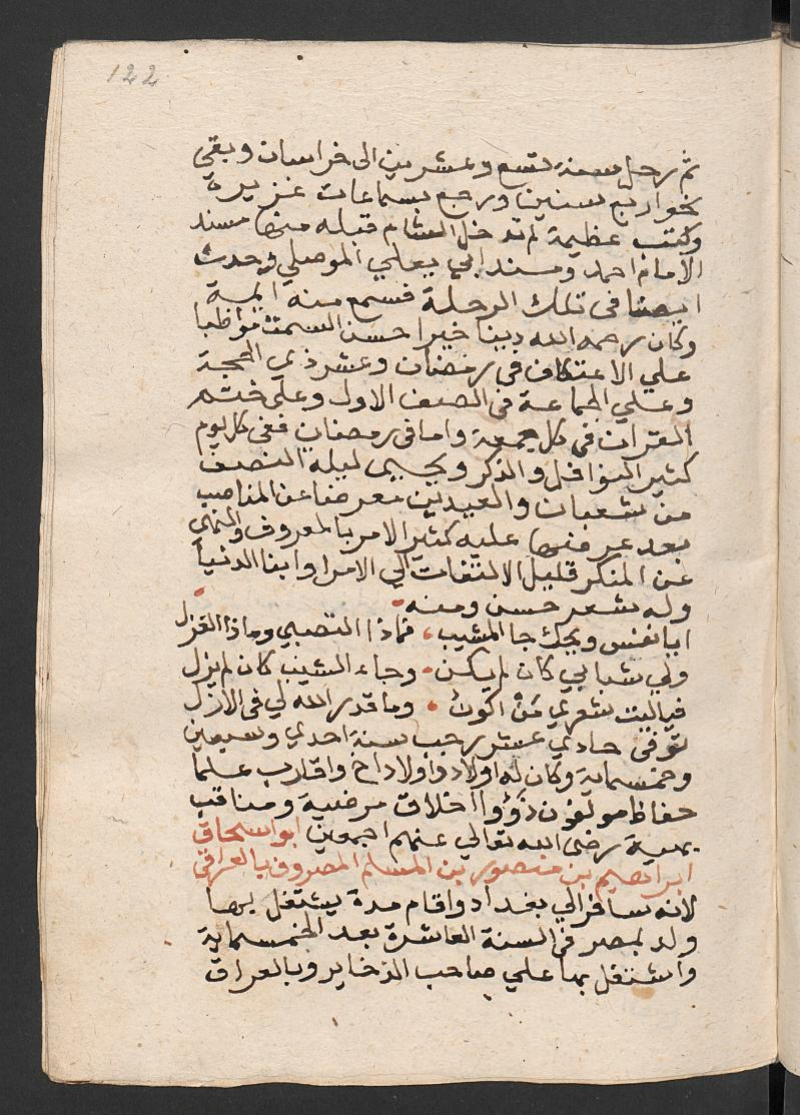 122
ثم رحل سنة تسع وعشرين الى خراسان وبقي
نحو اربع سنين ورجع بسماعات غزيرة
وكتب عظيمة لم تدخل الشام قبله منها مسند
الامام احمد ومسند ابي يعلي الموصلي وحدث
ايضا في تلك الرحلة فسمع منه ايمة
وكان رحمه الله دينا خيرا حسن السمت مواظبا
علي الاعتكاف في رمضان وعشر ذي الحجة
وعلي الجماعة في الصف الاول وعلي ختم
القران في كل جمعة واما في رمضان ففي كل يوم
كثير النوافل والذكر ويحيى ليله النصف
من شعبان والعيدين معرضا عن المناصب
بعد عرضها عليه كثير الامر بالمعروف والنهي
عن المنكر قليل الالتفات الي الامرا وابنا الدنيا
وله شعر حسن ومنه
ايا نفس ويحك جا المشيب، فماذا التصبي وماذا الغزل
ولي شبابي كان لم يكن وجاء المشيب كان لم يزل
فياليت شعري من اكون وما قدر الله لي في الازل
توفي حادي عشر رجب سنة احدي وسبعين
وخمسماية وكان له اولاد واولاد اخ واقارب علما
حفاظ مولفون ذووا اخلاق مرضية ومناقب
بهية رضى الله تعالي عنهم اجمعين ابو اسحاق
ابراهيم بن منصور بن المسلم المعروف بالعراقي
لانه سافر الي بغداد واقام مدة يشتغل بها
ولد بمصر في السنة العاشرة بعد الخمسماية
واشتغل بها علي صاحب الذخاير وبالعراق